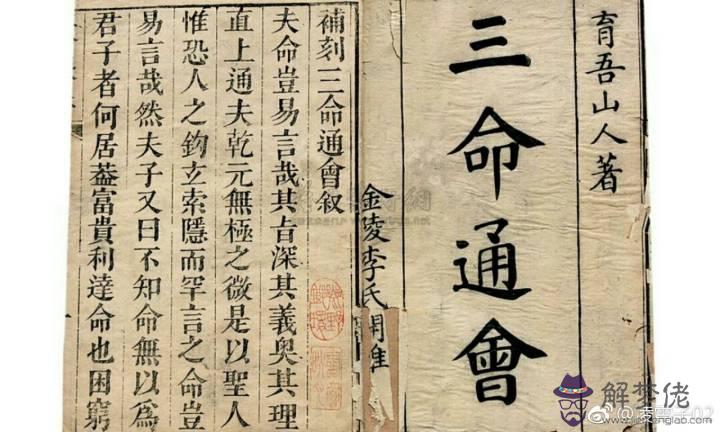 育吾山人著
三命通會
金陵李氏
補刻三命通會叙
夫命豈易言哉其㫖深其義奥其理
直上通夫乾元無極之微是以聖人
惟恐人之鈎玄索隱而罕言之命豈
易言哉然夫子又曰不知命無以為
君子者何居葢富貴利達命也困窮
解梦佬